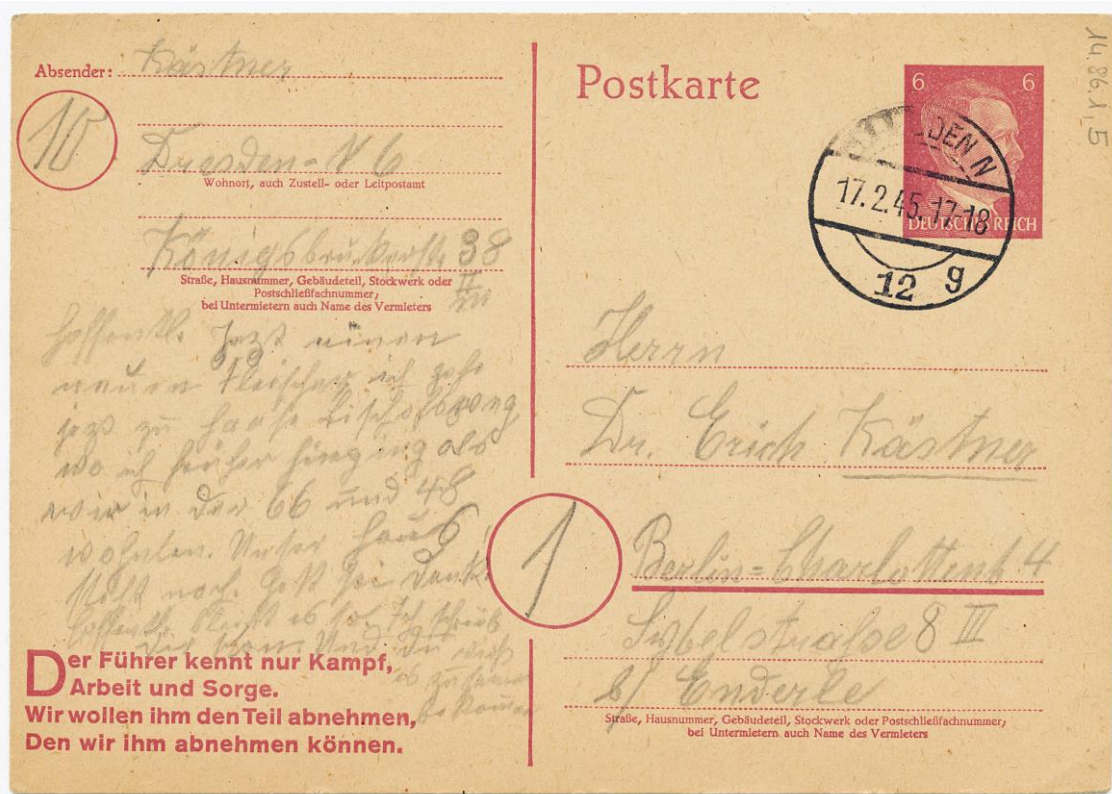 Absender: Kästner
10
Dresden-N 6
Wohnort, auch Zustell- oder Leitpostamt
Königsbrückerstr. 38
II
Straße, Hausnummer, Gebäudeteil, Stockwerk oder
Postschließfachnummer;
bei Untermietern auch Name des Vermieters
Hoffentl. jetzt einen
neuen Fleischer ich gehe
jetzt zu Haase Bischofsweg
wo ich früher hinging als
wir in der 66 und 48
wohnten. Unser Haus
steht noch. Gott sei Dank.
Hoffentl. bleibt es so. Ich
Der Führer kennt nur Kampf,
Arbeit und Sorge.
Wir wollen ihm den Teil abnehmen,
Den wir ihm abnehmen können.
Postkarte
6 6
DEUTSCHES REICH
DRESDEN N
17.2.45.17-18
12 g
14.86.1,5
Herrn
Dr. Erich Kästner
1
Berlin=Charlottenb 4
Sybelstraße 8 III
b/ Enderle
Straße, Hausnummer, Gebäudeteil, Stockwerk oder Postschließfachnummer;
bei Untermietern auch Name des Vermieters